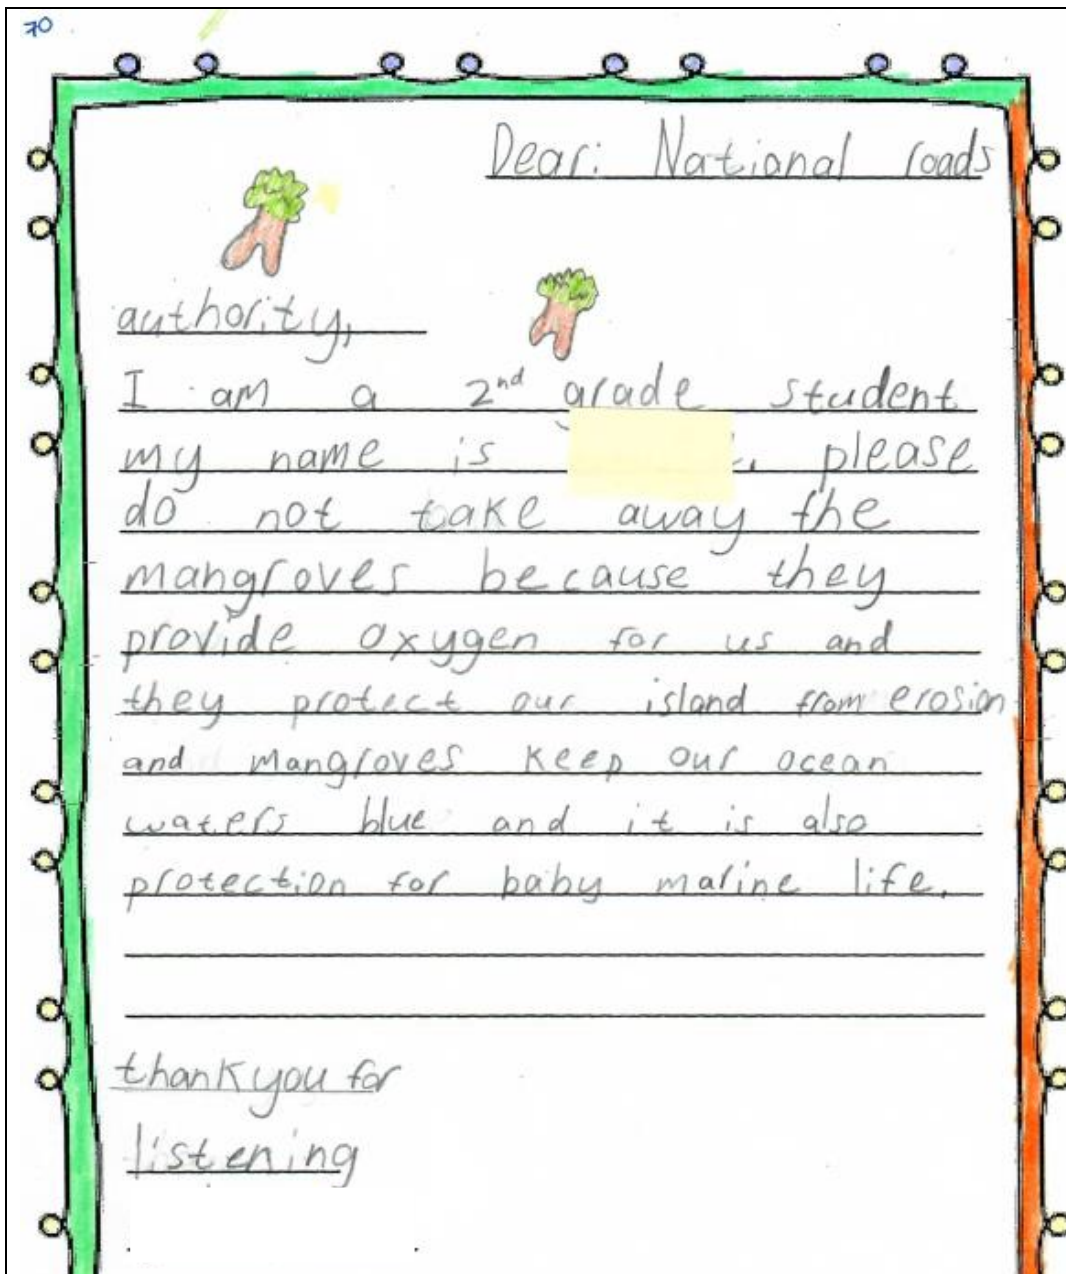 70
Dear: National roads
authority,
I am a 2nd grade student
my name is , please
do not take away the
mangroves because they
provide oxygen for us and
they protect our island from erosion
and mangroves keep our ocean
waters blue and it is also
protection for baby marine life.
thank you for
listening